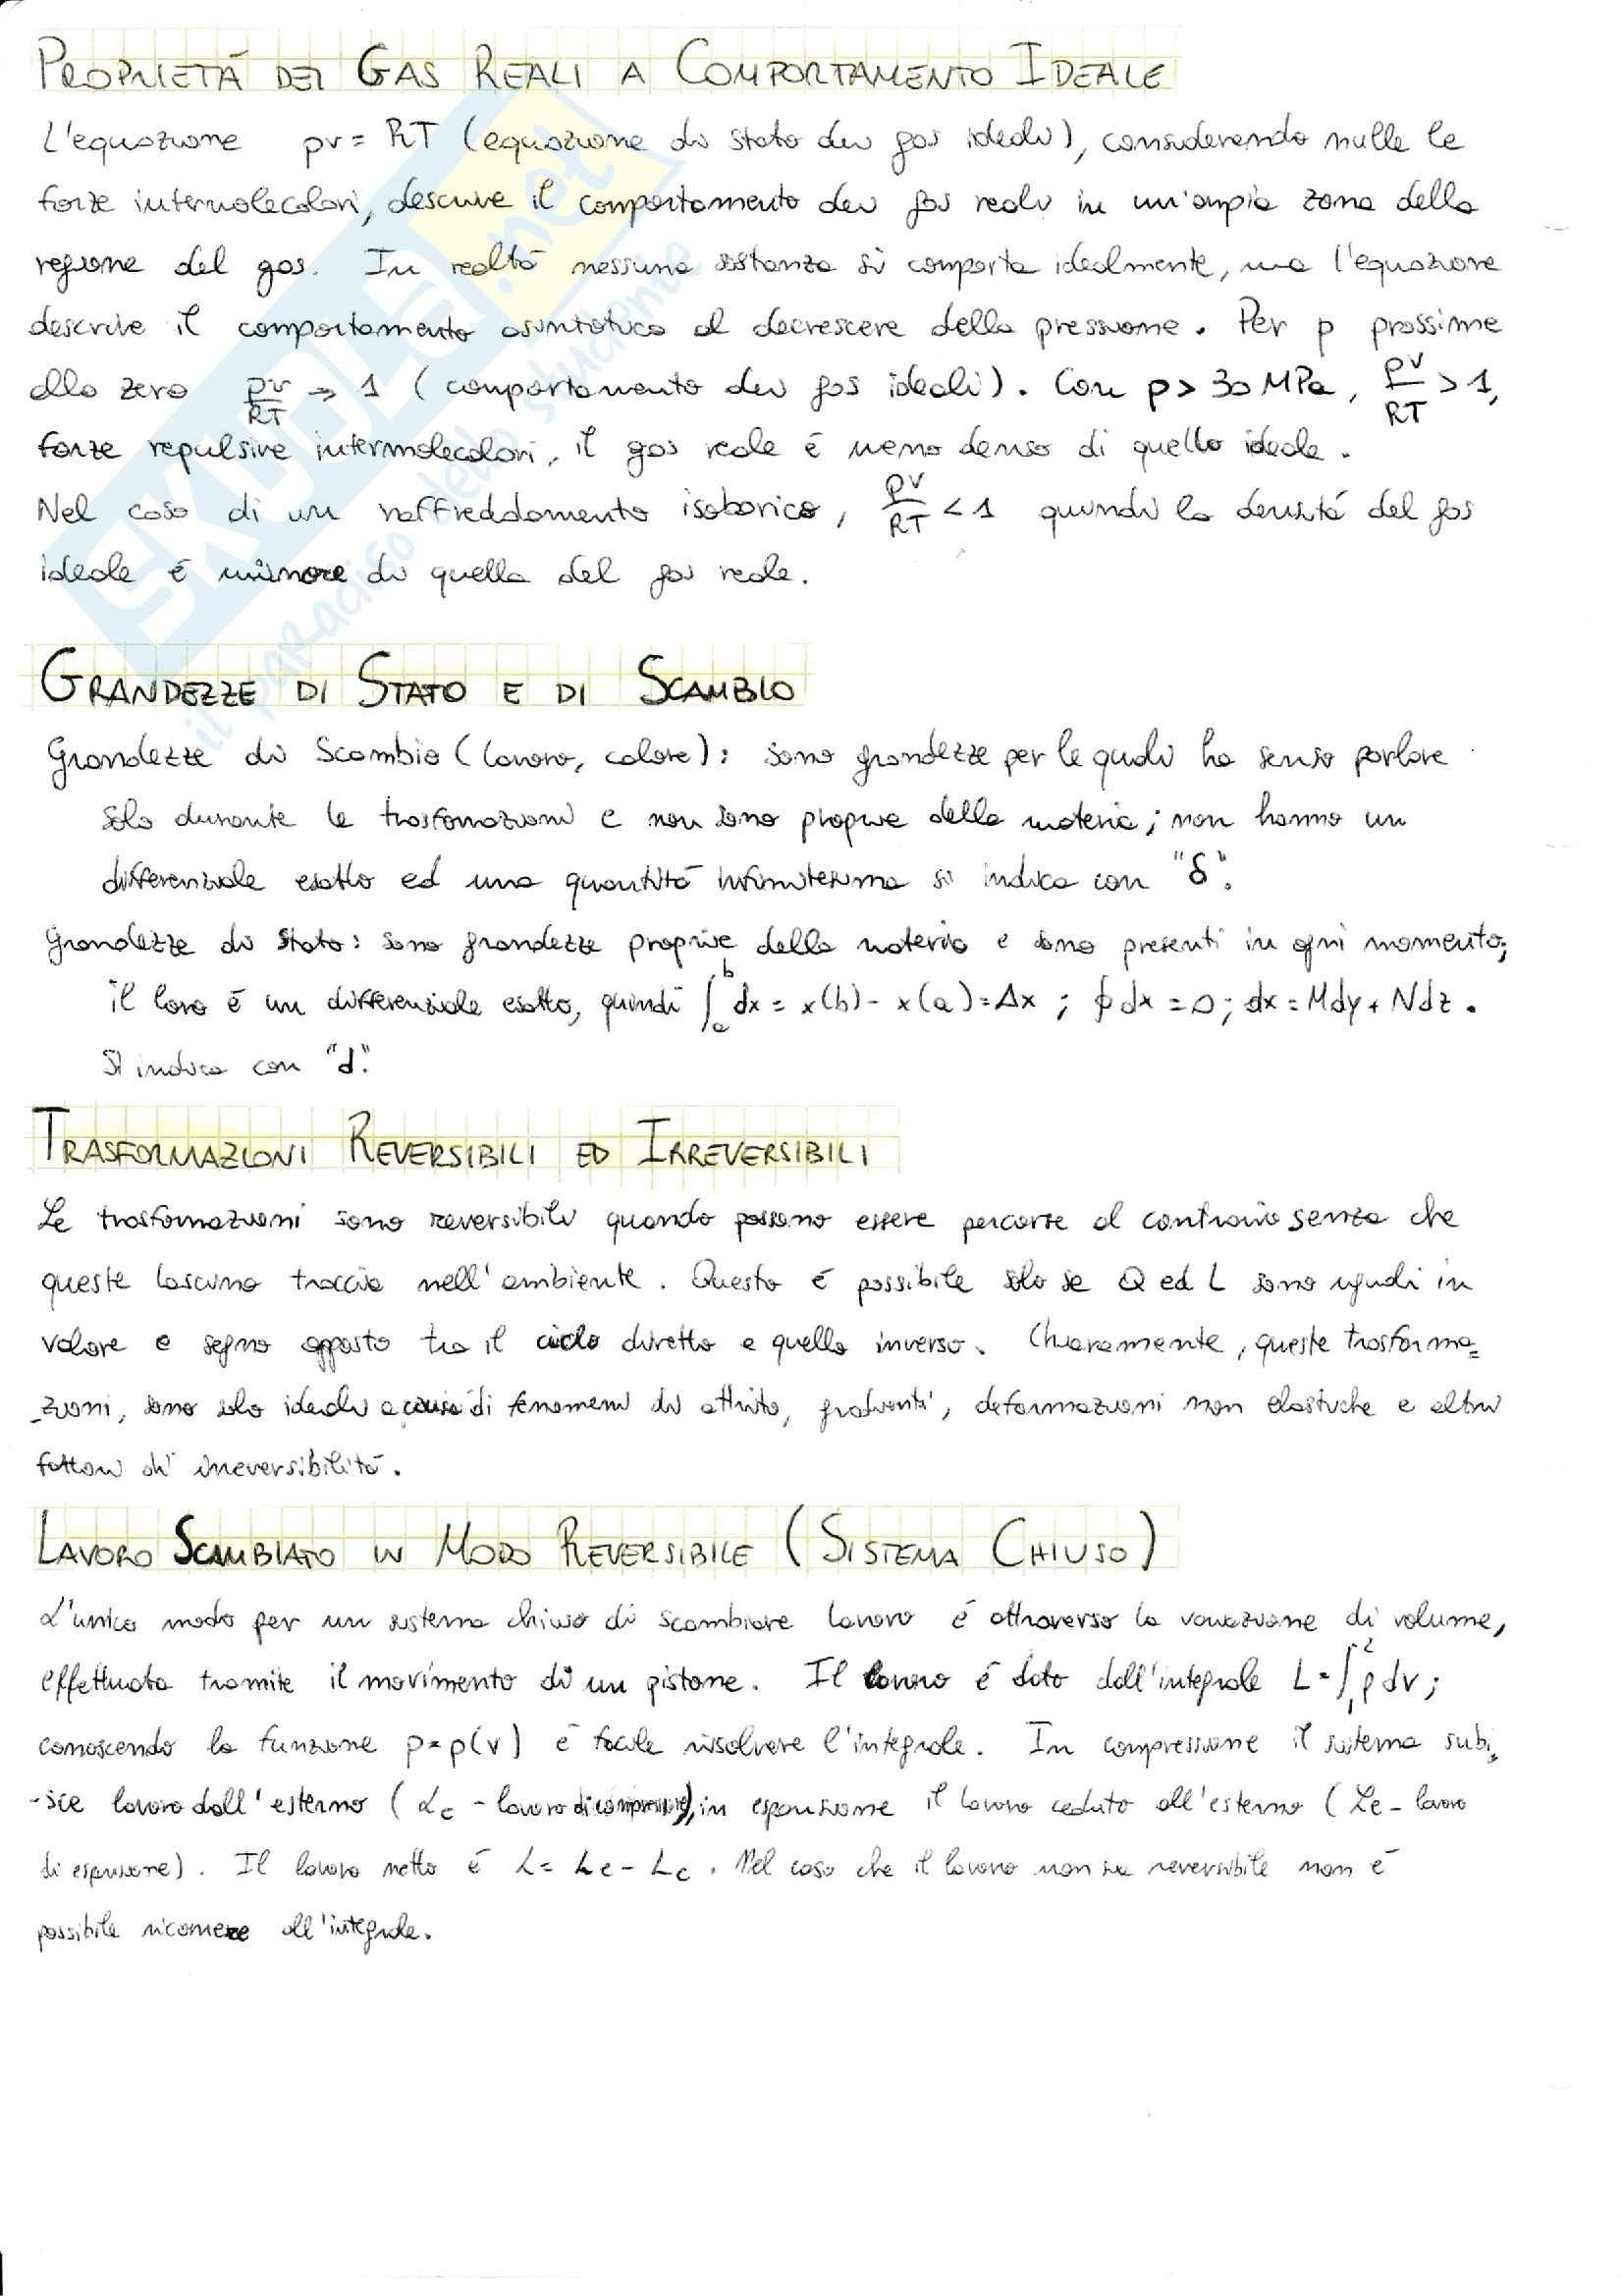 PROPRIETÁ DEI GAS REALI A COMPORTAMENTO IDEALE
L'equazione pv = RT (equazione di stato dei gas ideali), considerando nulle le
forze intermolecolari, descrive il comportamento dei gas reali in un'ampia zona della
regione del gas. In realtá nessuna sostanza si comporta idealmente, ma l'equazione
descrive il comportamento asintotico al decrescere della pressione. Per p prossime
allo zero pv/RT → 1 (comportamento dei gas ideali). Con p > 30 MPa, pv/RT > 1,
forze repulsive intermolecolari, il gas reale é meno denso di quello ideale.
Nel caso di un raffreddamento isobarico, pv/RT < 1 quindi la densitá del gas
ideale é minore di quella del gas reale.
GRANDEZZE DI STATO E DI SCAMBIO
Grandezze di Scambio (lavoro, calore): sono grandezze per le quali ha senso parlare
solo durante le trasformazioni e non sono proprie della materia; non hanno un
differenziale esatto ed una quantitá infinitesima si indica con "δ".
Grandezze di Stato: sono grandezze proprie della materia e sono presenti in ogni momento;
il loro é un differenziale esatto, quindi ∫_a^b dx = x(b) - x(a) = Δx ; ∮dx = 0; dx = Mdy + Ndz.
Si indica con "d".
TRASFORMAZIONI REVERSIBILI ED IRREVERSIBILI
Le trasformazioni sono reversibili quando possono essere percorse al contrario senza che
queste lascino traccia nell'ambiente. Questo é possibile solo se Q ed L sono uguali in
valore e segno opposto tra il ciclo diretto e quello inverso. Chiaramente, queste trasforma=
-zioni, sono solo ideali a causa di fenomeni di attrito, gradienti, deformazioni non elastiche e altri
fattori di irreversibilitá.
LAVORO SCAMBIATO IN MODO REVERSIBILE (SISTEMA CHIUSO)
L'unico modo per un sistema chiuso di scambiare lavoro é attraverso la variazione di volume,
effettuata tramite il movimento di un pistone. Il lavoro é dato dall'integrale L = ∫_1^2 p dv;
conoscendo la funzione p = p(v) é facile risolvere l'integrale. In compressione il sistema subi-
-sce lavoro dall'esterno (Lc - lavoro di compressione), in espansione il lavoro ceduto all'esterno (Le - lavoro
di espansione). Il lavoro netto é L = Le - Lc. Nel caso che il lavoro non sia reversibile non é
possibile ricorrere all'integrale.
SKUOLA.net
il paradiso dello studente